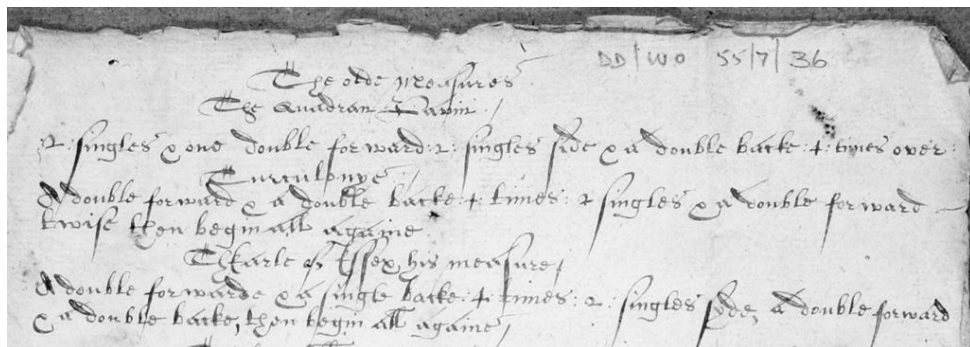 DD/WO 55/7/36
The olde Measures
The Quadran Pavin
2 singles & one double forward: 2: singles side & a double backe: 4: times over:
Turculonye
A double forward & a double backe: 4: times: 2 singles & a double forward
twise then begin all againe
Thearle of Essex his measure
A double forwarde & a single backe: 4: times: 2: singles syde, a double forward
& a double backe, then begin all againe